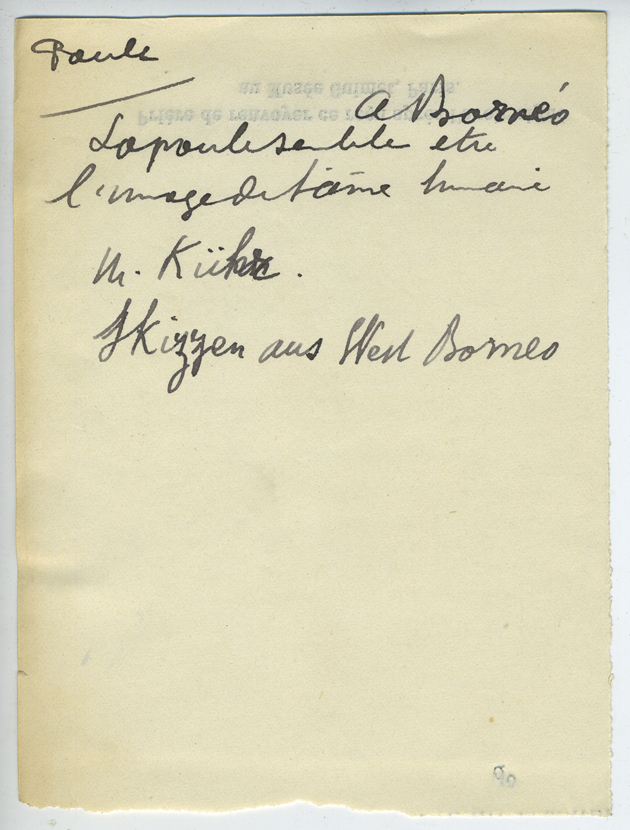 Poule
A Bornéo
La poule semble etre
l'image de l'âme humaine
M. Kühr.
Skizzen aus West Borneo
au Musée Guimet, Paris.
Prière de renvoyer ce